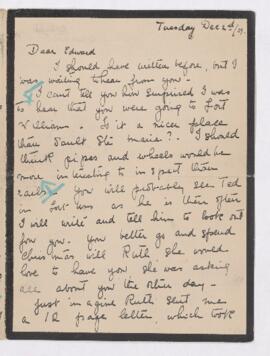 Tuesday Dec 2d/
Dear Edward
I should have written before, but I
was waiting to hear from you.
I can't tell you how surprised I was
to hear that you were going to Fort
William. Is it a nicer place
than Sault Ste Marie?. I should
think pipes and wheels would be
more interesting to inspect than
rails. You will probably see Ted
in Fort Wm as he is there often
I will write and tell him to look out
for you. You better go and spend
Christmas with Ruth, she would
love to have you she was asking
all about you the other day —
Just imagine Ruth sent me
a 12 page letter, which took